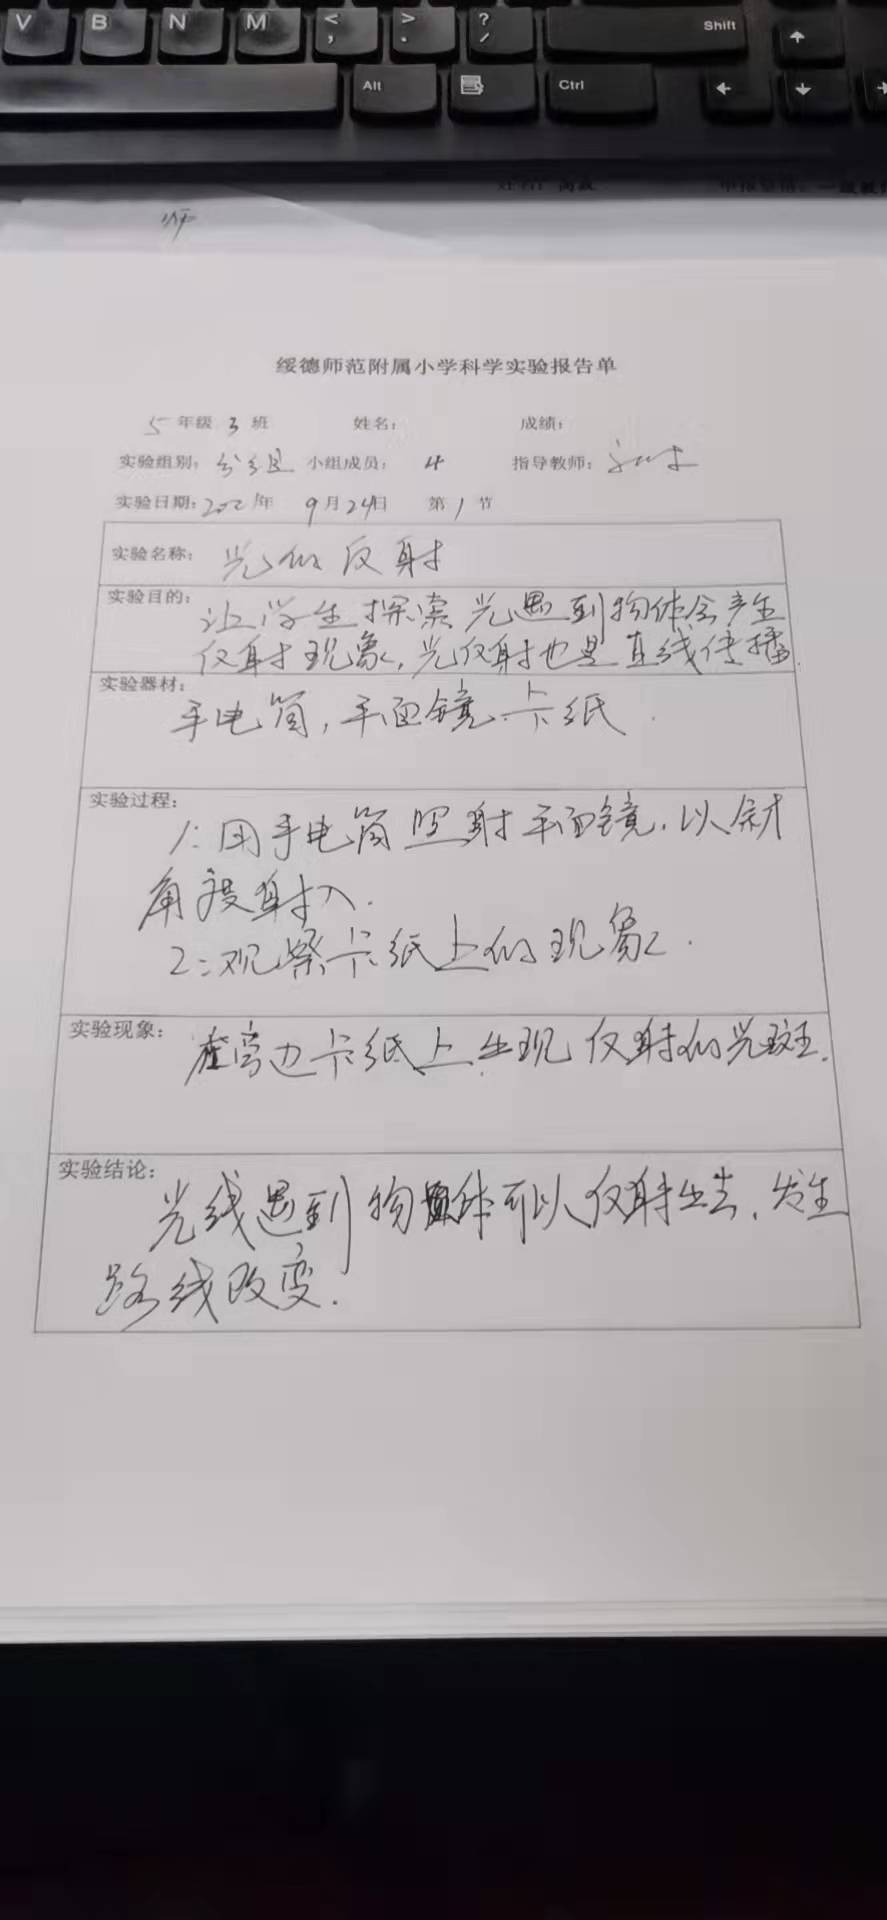 V B N M < , > . ? / Shift
Alt Ctrl
师
绥德师范附属小学科学实验报告单
5 年级 3 班 姓名: 成绩:
实验组别: 分组 小组成员: 4 指导教师:
实验日期: 2021年 9月24日 第1节
实验名称: 光的反射
实验目的: 让学生探索光遇到物体会产生
反射现象,光反射也是直线传播.
实验器材:
手电筒,平面镜.卡纸.
实验过程:
1:用手电筒照射平面镜.以斜
角度射入.
2:观察卡纸上的现象.
实验现象: 在旁边卡纸上出现反射的光斑.
实验结论:
光线遇到物体可以反射出去,发生
路线改变.